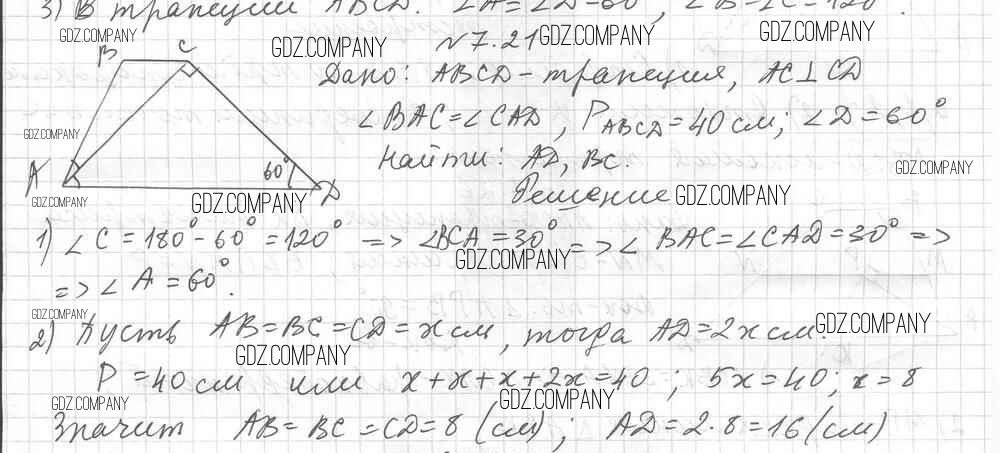 3) В трапеции ABCD. ∠A=∠D=60°, ∠B=∠C=120°.
GDZ.COMPANY GDZ.COMPANY N 7.21 GDZ.COMPANY GDZ.COMPANY
B C
Дано: ABCD – трапеция, AC⊥CD
GDZ.COMPANY ∠BAC=∠CAD, P_ABCD=40 см; ∠D=60°
Найти: AD, BC. GDZ.COMPANY
A 60° D
GDZ.COMPANY GDZ.COMPANY Решение GDZ.COMPANY
1) ∠C = 180° – 60° = 120° => ∠BCA = 30° => ∠BAC = ∠CAD = 30° =>
GDZ.COMPANY
=> ∠A = 60°.
GDZ.COMPANY
2) Пусть AB=BC=CD=x см, тогда AD=2x см. GDZ.COMPANY
GDZ.COMPANY
P = 40 см или x+x+x+2x=40; 5x=40; x=8
GDZ.COMPANY GDZ.COMPANY
Значит AB = BC = CD = 8 (см); AD = 2·8 = 16 (см)